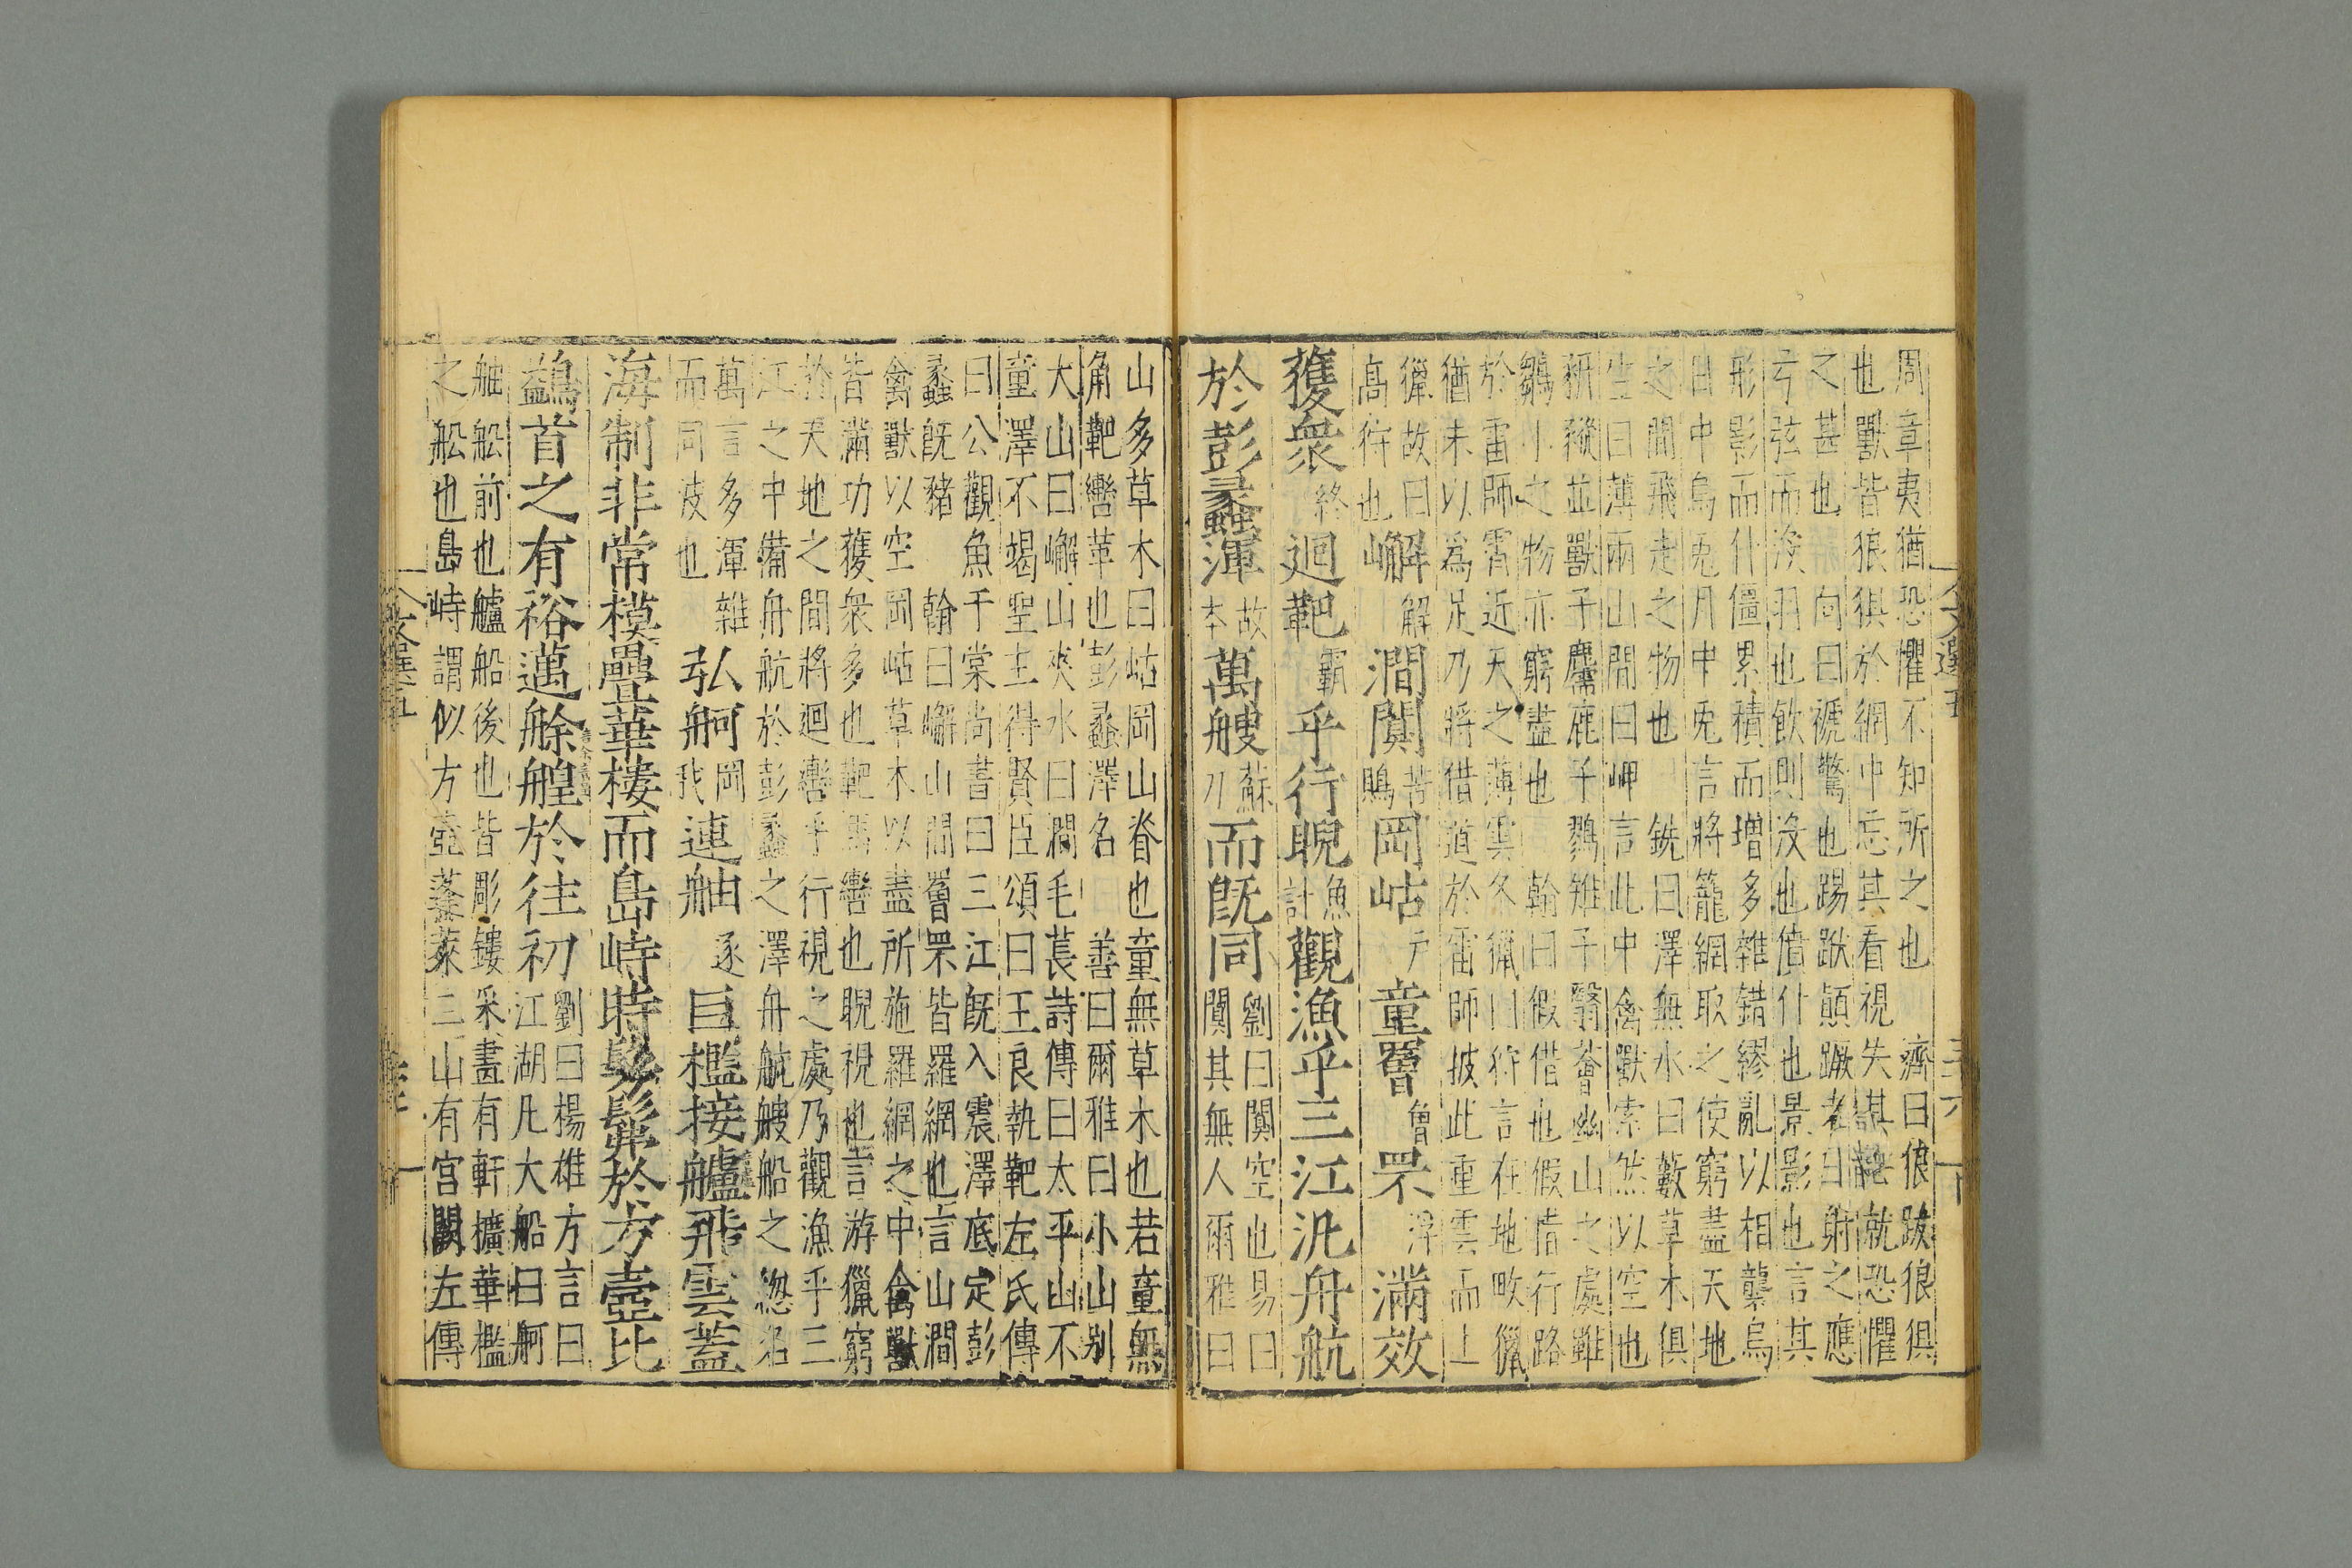 周章夷猶恐懼不知所之也　濟曰狼跋狼狽
也獸皆狼狽於網中忘其看視失其魂就恐懼
之甚也　向曰褫驚也踢跌顛蹶者曰射之應
弓弦而沒羽也飲則沒也僨什也景影也言其
形影而什僵累積而增多雜錯繆亂以相襲烏
日中烏兎月中兎言將籠網取之使窮盡天地
之間飛走之物也　銑曰澤無水曰藪草木俱
生曰薄兩山間曰岬言此中禽獸索然以空也
豜豵並獸子麛鹿子鷚雉子翳薈幽山之處雖
鶵小之物亦窮盡也　翰曰假借也假借行路
於雷師霄近天之薄雲冬獵曰狩言在地畋獵
猶未以爲足乃將借道於雷師披此重雲而上
獵故曰高狩也嶰解澗闃苦鶪岡岵戶童罾曾罘浮滿效
獲衆終迴靶霸乎行睨魚計觀漁乎三江汎舟航
於彭蠡渾故本萬艘蘇刀而旣同劉曰闃空也易曰闃其無人爾雅曰
山多草木曰岵岡山脊也童無草木也若童無
角靶轡革也彭蠡澤名　善曰爾雅曰小山别
大山曰嶰山夾水曰澗毛萇詩傳曰太平山不
童澤不竭聖主得賢臣頌曰王良執靶左氏傳
曰公觀魚于棠尚書曰三江旣入震澤底定彭
蠡旣豬　翰曰嶰山間罾罘皆羅網也言山澗
禽獸以空岡岵草木以盡所施羅網之中禽獸
皆滿功獲衆多也靶馬轡也睨視也言游獵窮
於天地之間將迴轡乎行視之處乃觀漁乎三
江之中備舟航於彭蠡之澤舟航艘船之緫名
萬言多渾雜而同波也弘舸岡我連舳逐巨檻接艫飛雲蓋
海制非常模疊華樓而島峙時髣髴於方壺比
鷁首之有裕邁艅艎於往初劉曰楊雄方言曰江湖凡大船曰舸
舳舩前也艫船後也皆彫鏤采畫有軒擴華檻
之舩也島峙謂似方壺蓬萊三山有宮闕左傳